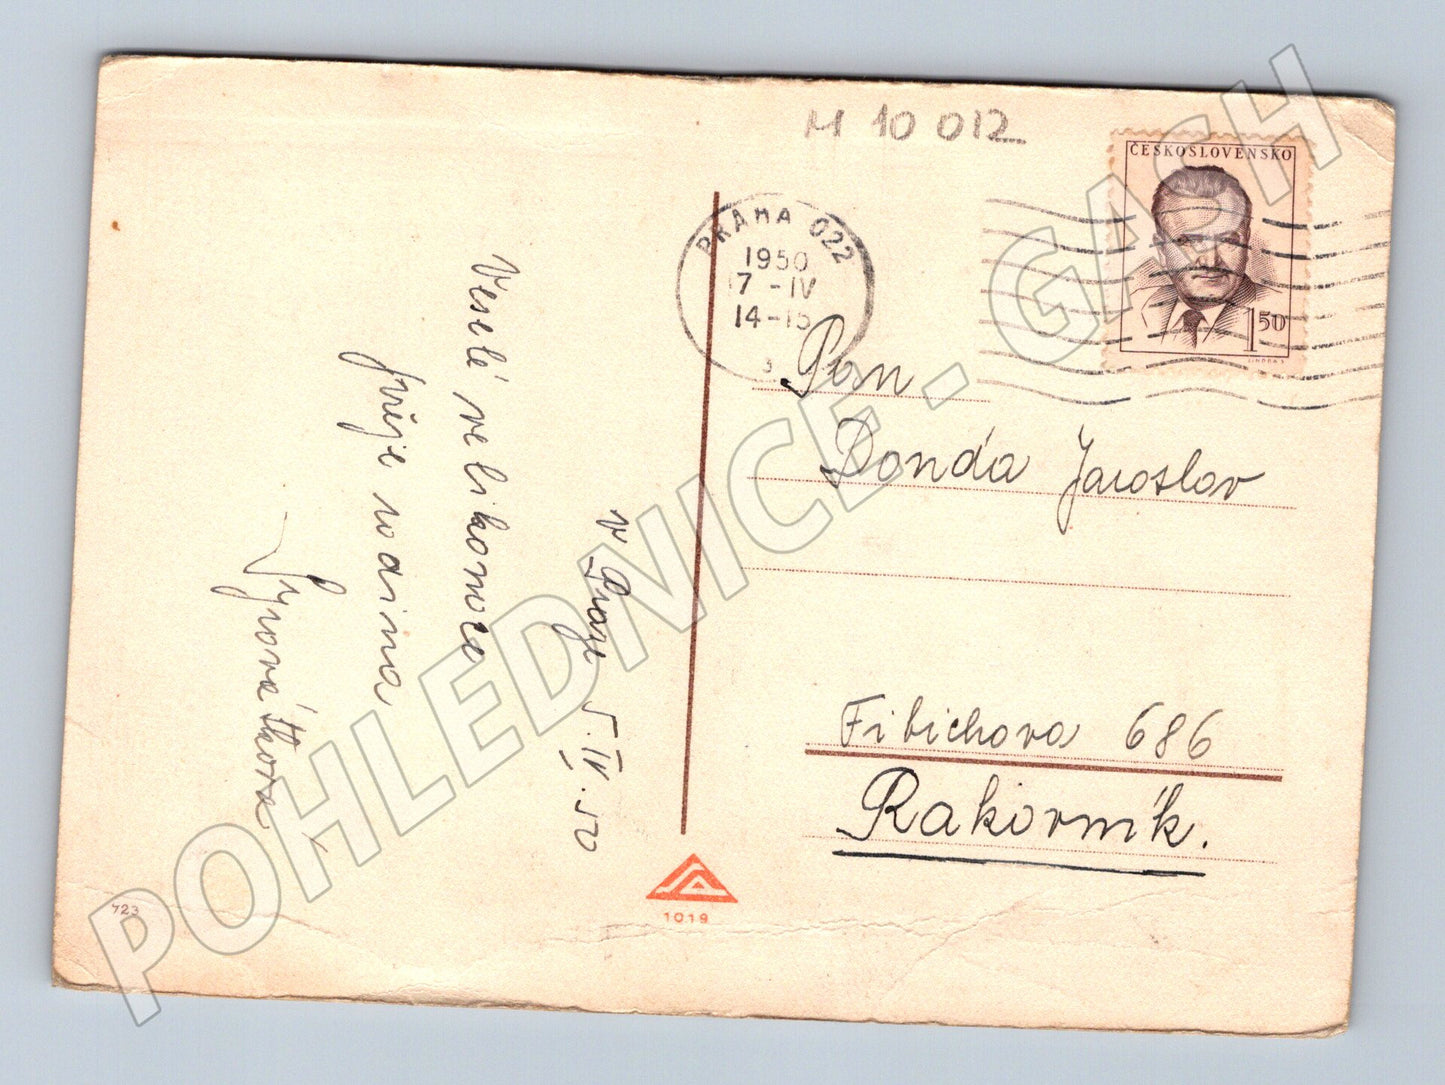 M 10 012
ČESKOSLOVENSKO
1 50
PRAHA 022
1950
7 -IV
14-15
Pan
Donďa Jaroslav
Fibichova 686
Rakovník.
v Praze 5.IV.50
Veselé velikonoce
přeje rodina
723
1019
POHLEDNICE - GASH